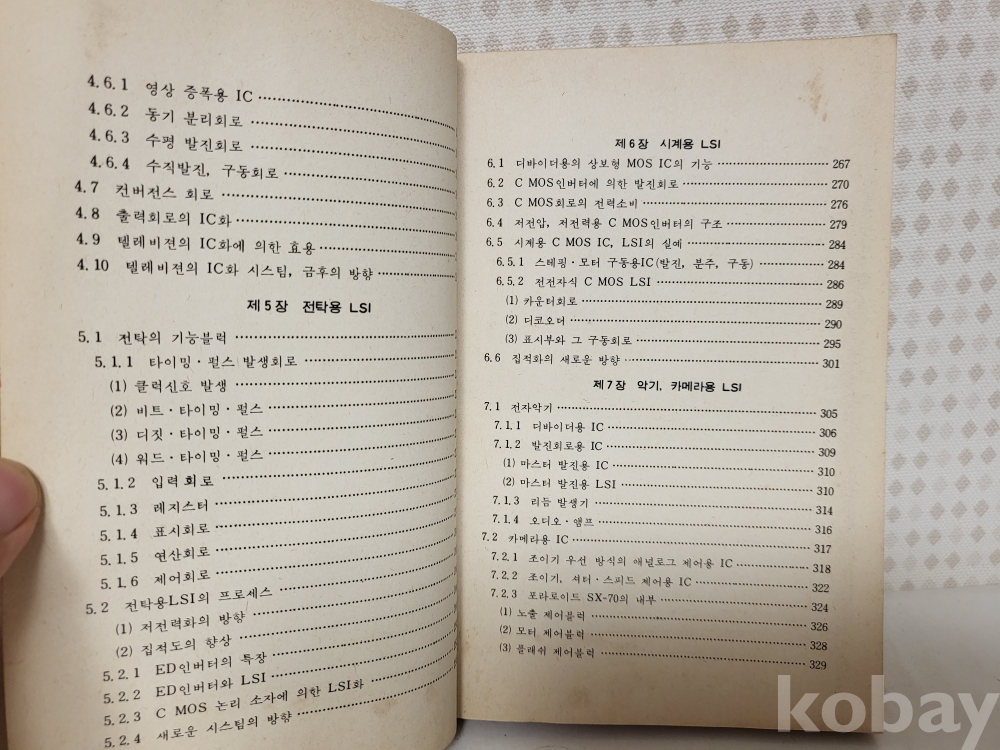 4.6.1 영상 증폭용 IC
4.6.2 동기 분리회로
4.6.3 수평 발진회로
4.6.4 수직발진, 구동회로
4.7 컨버전스 회로
4.8 출력회로의 IC화
4.9 텔레비젼의 IC화에 의한 효용
4.10 텔레비젼의 IC화 시스팀, 금후의 방향
제 5 장 전탁용 LSI
5.1 전탁의 기능블럭
5.1.1 타이밍·펄스 발생회로
(1) 클럭신호 발생
(2) 비트·타이밍·펄스
(3) 디짓·타이밍·펄스
(4) 워드·타이밍·펄스
5.1.2 입력회로
5.1.3 레지스터
5.1.4 표시회로
5.1.5 연산회로
5.1.6 제어회로
5.2 전탁용LSI의 프로세스
(1) 저전력화의 방향
(2) 집적도의 향상
5.2.1 ED인버터의 특장
5.2.2 ED인버터와 LSI
5.2.3 C MOS 논리 소자에 의한 LSI화
5.2.4 새로운 시스팀의 방향
제 6 장 시계용 LSI
6.1 디바이더용의 상보형 MOS IC의 기능 267
6.2 C MOS인버터에 의한 발진회로 270
6.3 C MOS회로의 전력소비 276
6.4 저전압, 저전력용 C MOS인버터의 구조 279
6.5 시계용 C MOS IC, LSI의 실예 284
6.5.1 스테핑·모터 구동용IC(발진, 분주, 구동) 284
6.5.2 전전자식 C MOS LSI 286
(1) 카운터회로 289
(2) 디코오더 290
(3) 표시부와 그 구동회로 295
6.6 집적화의 새로운 방향 301
제 7 장 악기, 카메라용 LSI
7.1 전자악기 305
7.1.1 디바이더용 IC 306
7.1.2 발진회로용 IC 309
(1) 마스터 발진용 IC 310
(2) 마스터 발진용 LSI 310
7.1.3 리듬 발생기 314
7.1.4 오디오·앰프 316
7.2 카메라용 IC 317
7.2.1 조이기 우선 방식의 애널로그 제어용 IC 318
7.2.2 조이기, 셔터·스피드 제어용 IC 322
7.2.3 포라로이드 SX-70의 내부 324
(1) 노출 제어블럭 326
(2) 모터 제어블럭 328
(3) 플래쉬 제어블럭 329
kobay